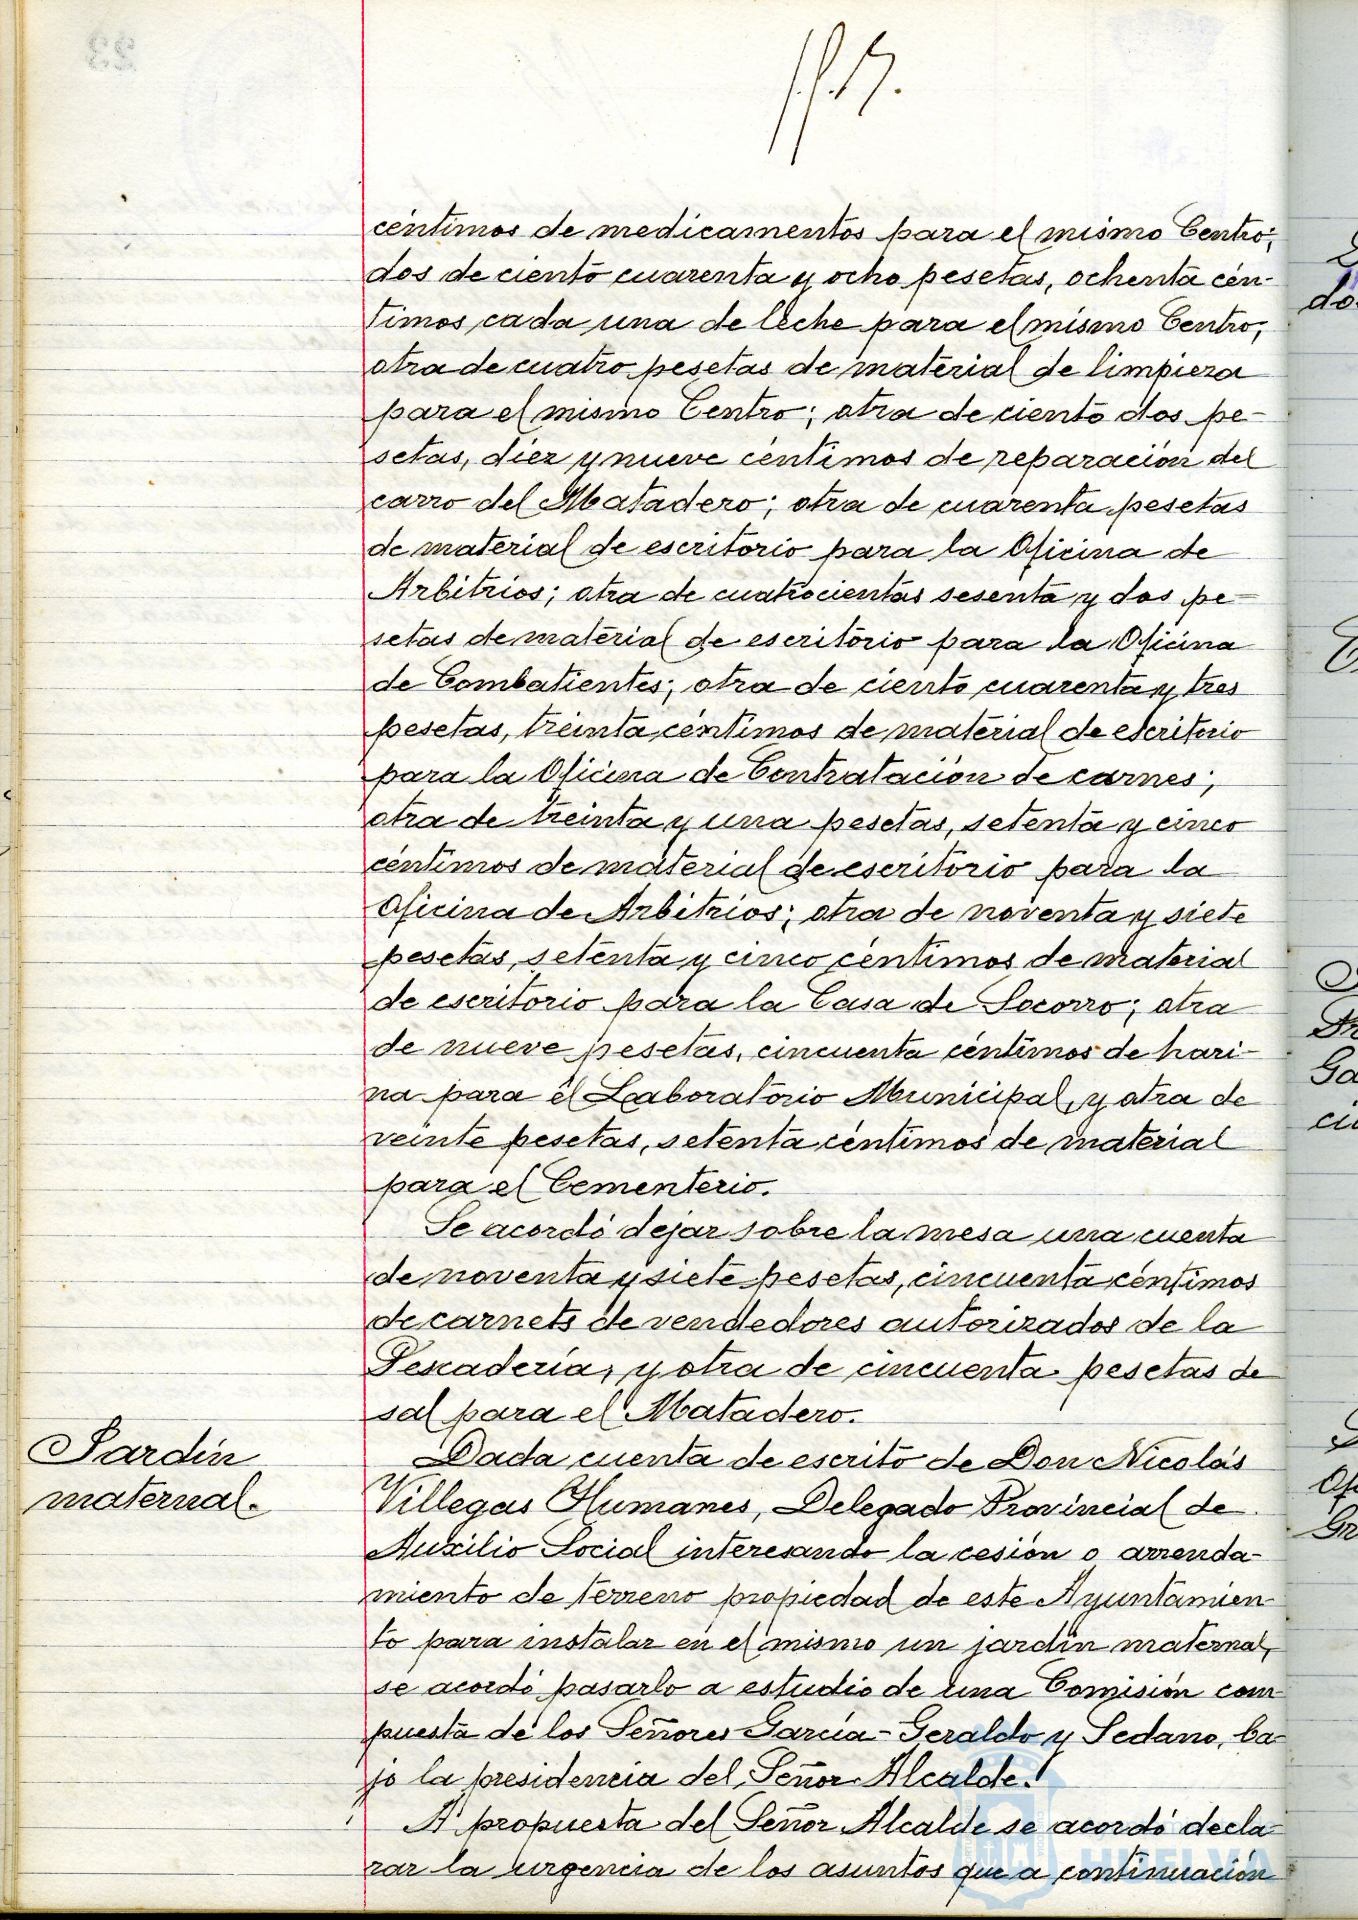 céntimos de medicamentos para el mismo Centro;
dos de ciento cuarenta y ocho pesetas, ochenta cén-
timos cada una de leche para el mismo Centro,
otra de cuatro pesetas de material de limpieza
para el mismo Centro; otra de ciento dos pe-
setas, diez y nueve céntimos de reparación del
carro del Matadero; otra de cuarenta pesetas
de material de escritorio para la Oficina de
Arbitrios; otra de cuatrocientas sesenta y dos pe-
setas de material de escritorio para la Oficina
de Combatientes; otra de ciento cuarenta y tres
pesetas, treinta céntimos de material de escritorio
para la Oficina de Contratación de carnes;
otra de treinta y una pesetas, setenta y cinco
céntimos de material de escritorio para la
Oficina de Arbitrios; otra de noventa y siete
pesetas, setenta y cinco céntimos de material
de escritorio para la Casa de Socorro; otra
de nueve pesetas, cincuenta céntimos de hari-
na para el Laboratorio Municipal, y otra de
veinte pesetas, setenta céntimos de material
para el Cementerio.
Se acordó dejar sobre la mesa una cuenta
de noventa y siete pesetas, cincuenta céntimos
de carnets de vendedores autorizados de la
Pescadería, y otra de cincuenta pesetas de
sal para el Matadero.
Jardín
maternal.
Dada cuenta de escrito de Don Nicolás
Villegas Humanes, Delegado Provincial de
Auxilio Social interesando la cesión o arrenda-
miento de terreno propiedad de este Ayuntamien-
to para instalar en el mismo un jardín maternal,
se acordó pasarlo a estudio de una Comisión com-
puesta de los Señores García-Geraldo y Sedano, ba-
jo la presidencia del Señor Alcalde.
A propuesta del Señor Alcalde se acordó decla-
rar la urgencia de los asuntos que a continuación
HUELVA